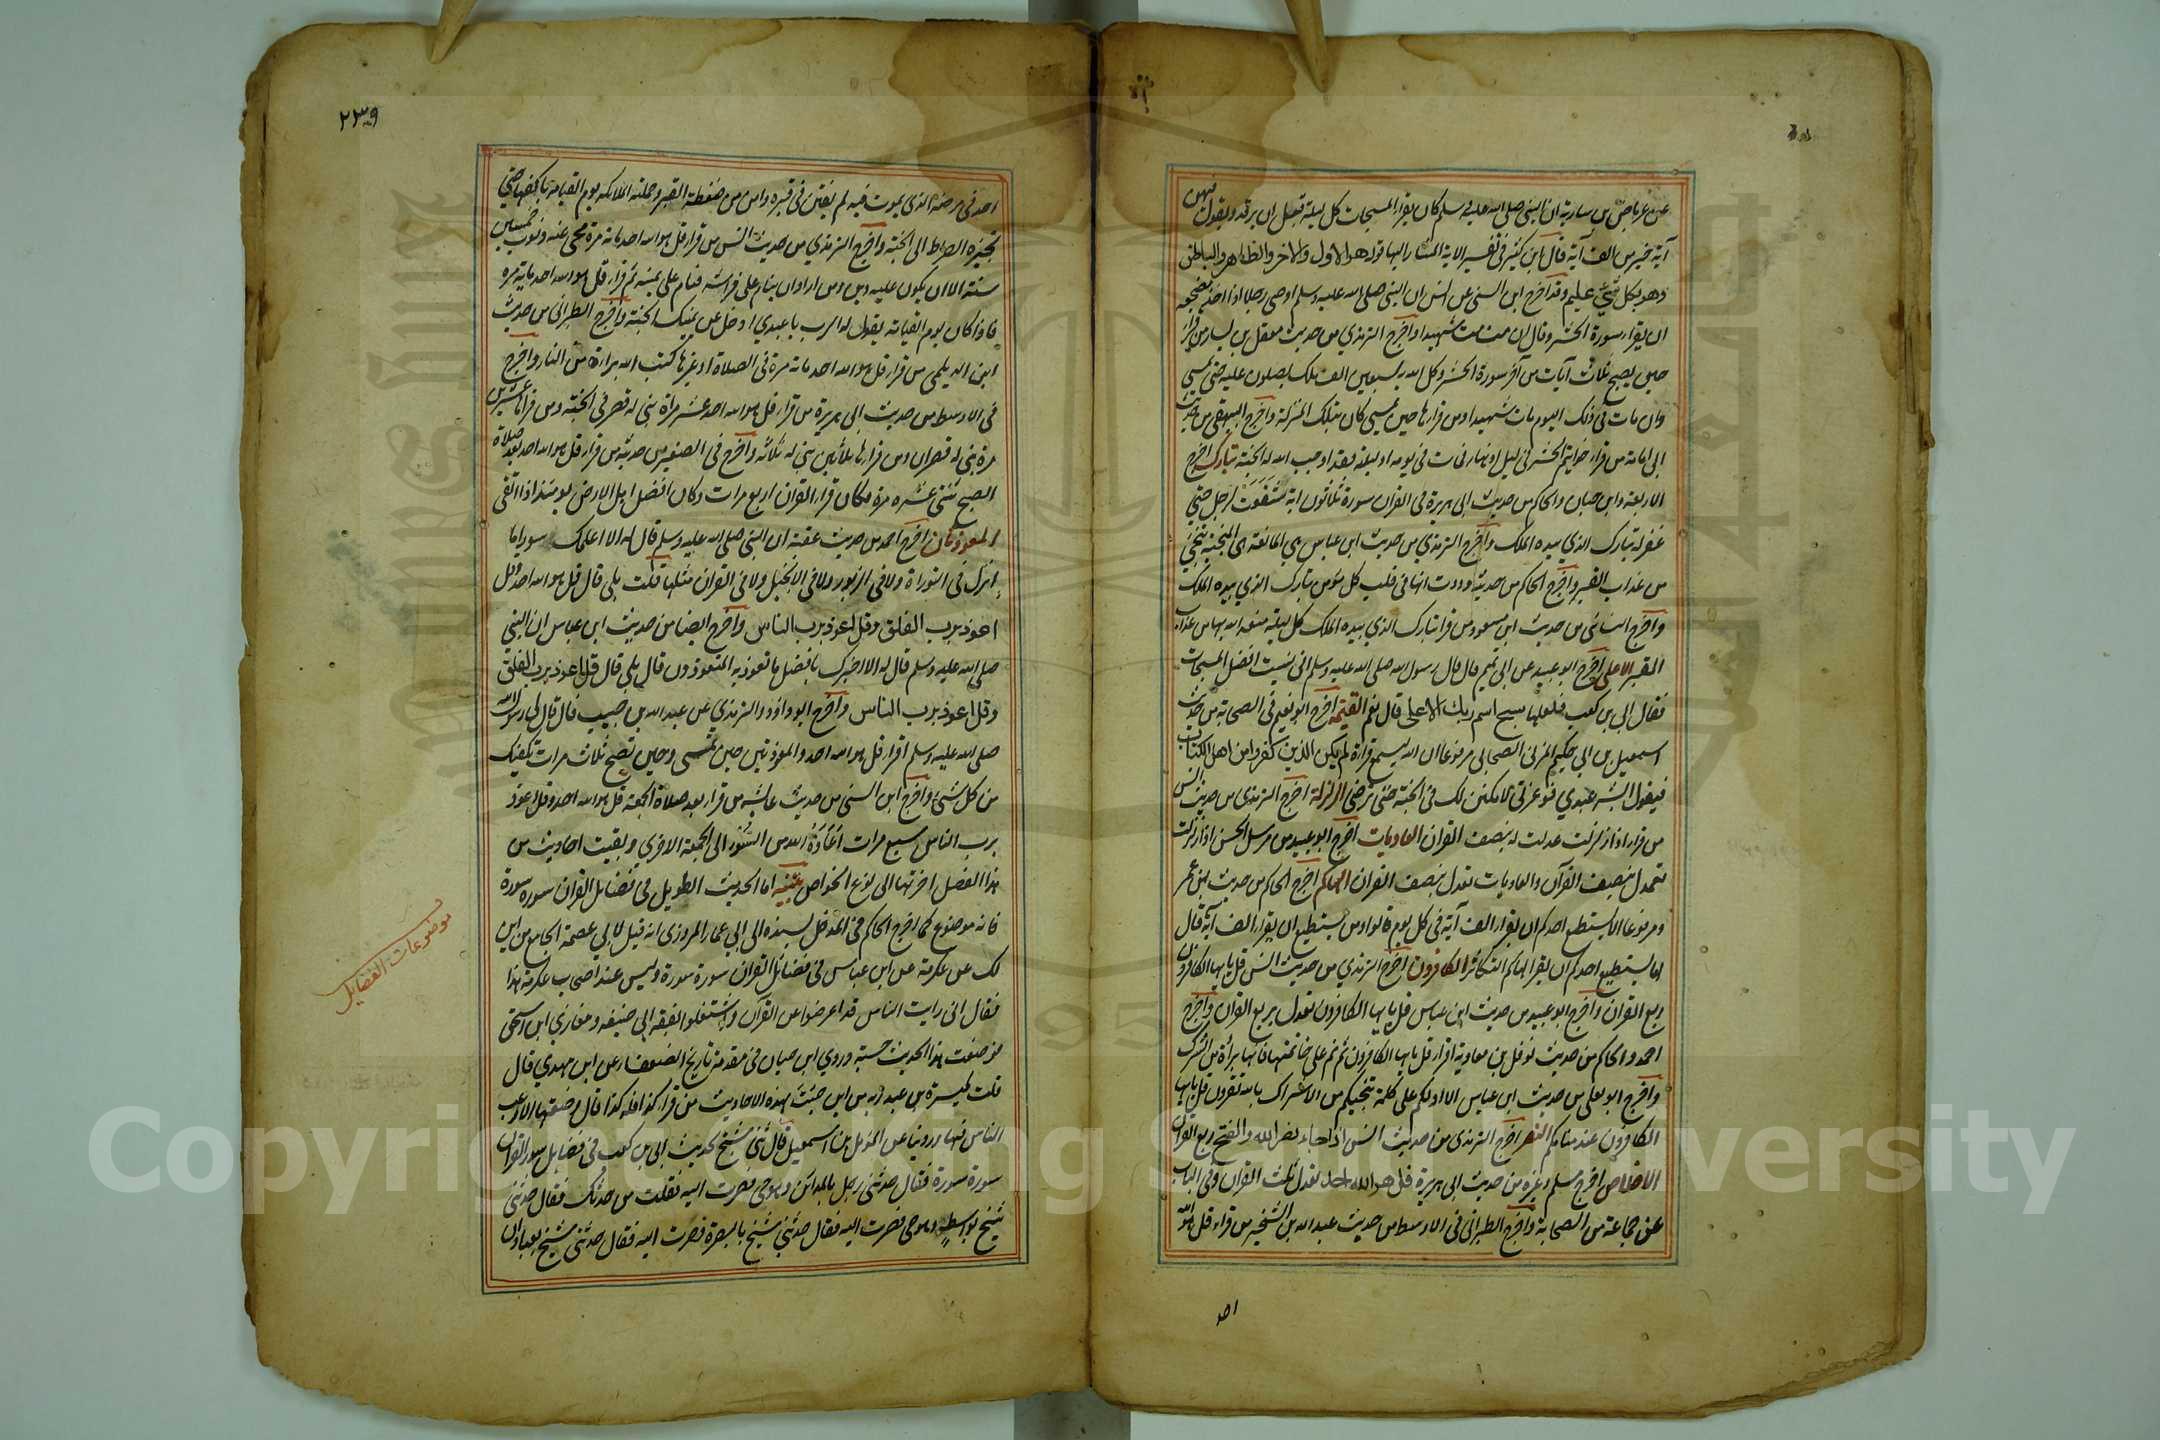 عن عرباض بن سارية ان النبي صلى الله عليه وسلم كان يقرا المسبحات كل ليلة قبل ان يرقد ويقول فيهن
آية خير من الف آية قال ابن كثير في تفسير الاية المشار اليها قوله هو الاول والاخر والظاهر والباطن
وهو بكل شيء عليم وقد اخرج ابن السني عن انس ان النبي صلى الله عليه وسلم اوصى رجلا اذا اخذ مضجعه
ان يقراء سورة الحشر وقال ان مت مت شهيدا واخرج الترمذي من حديث معقل بن يسار من قرا
حين يصبح ثلاث آيات من آخر سورة الحشر وكل الله به سبعين الف ملك يصلون عليه حتى يمسي
وان مات في ذلك اليوم مات شهيدا ومن قرارها حين يمسي كان بتلك المنزلة واخرج البيهقي من حديث
ابي امامة من قراء خواتيم الحشر في ليل او نهار فمات في يومه او ليلته فقد اوجب الله له الجنة تبارك اخرج
الاربعة وابن حبان والحاكم من حديث ابي هريرة في القران سورة ثلاثون اية شفعت لرجل حتى
غفر له تبارك الذي بيده الملك واخرج الترمذي من حديث ابن عباس هي المانعة هي المنجية تنجي
من عذاب القبر واخرج الحاكم من حديثه وددت انها في قلب كل مؤمن تبارك الذي بيده الملك
واخرج النسائي من حديث ابن مسعود من قرا تبارك الذي بيده الملك كل ليلة منعه الله بها من عذاب
القبر الاعلى اخرج ابو عبيد عن ابي تميم قال قال رسول الله صلى الله عليه وسلم اني نسيت افضل المسبحات
فقال ابي بن كعب فلعلها سبح اسم ربك الاعلى قال نعم القيمة اخرج ابو نعيم في الصحابة من حديث
اسمعيل بن ابي حكيم المزني الصحابي مرفوعا ان الله يسمع قراءة لم يكن الذين كفروا من اهل الكتاب
فيقول ابشر عبدي فوعزتي لامكنن لك في الجنة حتى ترضى الزلزلة اخرج الترمذي من حديث انس
من قراء اذا زلزلت عدلت له بنصف القران العاديات اخرج ابو عبيد من مرسل الحسن اذا زلزلت
تعدل بنصف القرآن والعاديات تعدل بنصف القران الهاكم اخرج الحاكم من حديث ابن عمر
مرفوعا الا يستطيع احدكم ان يقرا الف آية في كل يوم قالوا ومن يستطيع ان يقرا الف آية قال
اما يستطيع احدكم ان يقرا الهاكم التكاثر الكافرون اخرج الترمذي من حديث انس قل يا ايها الكافرون
ربع القران واخرج ابو عبيد من حديث ابن عباس قل يا ايها الكافرون تعدل بربع القران واخرج
احمد والحاكم من حديث نوفل بن معاوية اقراء قل يا ايها الكافرون ثم نم على خاتمتها فانها براءة من الشرك
واخرج ابو يعلى من حديث ابن عباس الا ادلكم على كلمة تنجيكم من الاشراك بالله تقرؤن قل يا ايها
الكافرون عند منامكم النصر اخرج الترمذي من حديث انس اذا جاء نصر الله والفتح ربع القران
الاخلاص اخرج مسلم وغيره من حديث ابي هريرة قل هو الله احد تعدل ثلث القران وفي الباب
عن جماعة من الصحابة واخرج الطبراني في الاوسط من حديث عبد الله بن الشخير من قراء قل هو الله
احد
٢٣٩
احد في مرضه الذي يموت فيه لم يفتن في قبره وامن من ضغطة القبر وحملته الملائكة يوم القيامة باكفها حتى
تجيزه الصراط الى الجنة واخرج الترمذي من حديث انس من قراء قل هو الله احد مائة مرة محي عنه ذنوب خمسين
سنة الا ان يكون عليه دين ومن اراد ان ينام على فراشه فنام على يمينه ثم قراء قل هو الله احد ماية مرة
فاذا كان يوم القيامة يقول له الرب يا عبدي ادخل عن يمينك الجنة واخرج الطبراني من حديث
ابن الديلمي من قراء قل هو الله احد مائة مرة في الصلاة او غيرها كتب الله براءة من النار واخرج
في الاوسط من حديث ابي هريرة من قراء قل هو الله احد عشر مراة بني له قصر في الجنة ومن قراها عشرين
مرة بني له قصران ومن قرارها ثلاثين بني له ثلاثة واخرج في الصغير من حديثه من قراء قل هو الله احد بعد صلاة
الصبح ثنتي عشره مرة فكان قراء القران اربع مرات وكان افضل اهل الارض يومئذ اذا اتقى
المعوذتان اخرج احمد من حديث عقبة ان النبي صلى الله عليه وسلم قال له الا اعلمك سورا ما
انزل في التوراة ولا في الزبور ولا في الانجيل ولا في القران مثلها قلت بلى قال قل هو الله احد وقل
اعوذ برب الفلق وقل اعوذ برب الناس واخرج ايضا من حديث ابن عباس ان النبي
صلى الله عليه وسلم قال له الا اخبرك بافضل ما تعوذ به المتعوذون قال بلى قال قل اعوذ برب الفلق
وقل اعوذ برب الناس واخرج ابو داؤد والترمذي عن عبد الله بن خبيب قال قال لي رسول الله
صلى الله عليه وسلم اقراء قل هو الله احد والمعوذتين حين تمسي وحين تصبح ثلاث مرات تكفيك
من كل شئ واخرج ابن السني من حديث عايشه من قراء بعد صلاة الجمعة قل هو الله احد وقل اعوذ
برب الناس سبع مرات اعاذه الله من السوء الى الجمعة الاخرى وبقيت احاديث من
هذا الفصل اخرتها الى نوع الخواص تنبيه اما الحديث الطويل في فضائل القران سورة سورة
فانه موضوع كما اخرج الحاكم في المدخل بسنده الى ابي عمار المروزي انه قيل لابي عصمة الجامع من اين
لك عن عكرمة عن ابن عباس في فضائل القران سورة سورة وليس عند اصحاب عكرمة هذا
فقال اني رايت الناس قد اعرضوا عن القرآن واشتغلوا بفقه ابي حنيفه ومغازي ابن اسحق
فوضعت هذا الحديث حسبة وروي ابن حبان في مقدمة تاريخ الضعفاء عن ابن مهدي قال
قلت لميسرة بن عبد ربه من اين جئت بهذه الاحاديث من قراء كذا فله كذا قال وضعتها لارغب
الناس فيها وروينا عن المؤمل بن اسمعيل قال ثني شيخ بحديث ابي بن كعب في فضايل سور القران
سورة سورة فقال حدثني رجل بالمدائن وهو حي فصرت اليه فقلت من حدثك فقال حدثني
شيخ بواسط وهو حي فصرت اليه فقال حدثني شيخ بالبصرة فصرت اليه فقال حدثني شيخ بعبادان
موضوعات الفضايل
Copyright © King Saud University